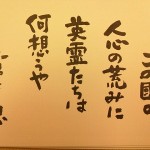 この国の
人心の荒みに
英霊たちは
何想うや